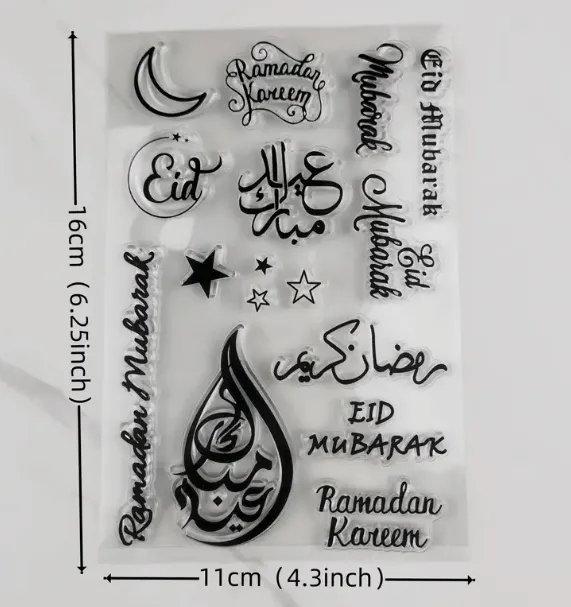 Ramadan
Kareem
Mubarak
Eid Mubarak
Eid
عيد
مبارك
Eid
Mubarak
Ramadan Mubarak
رمضان كريم
عيد
مبارك
EID
MUBARAK
Ramadan
Kareem
16cm (6.25inch)
11cm (4.3inch)